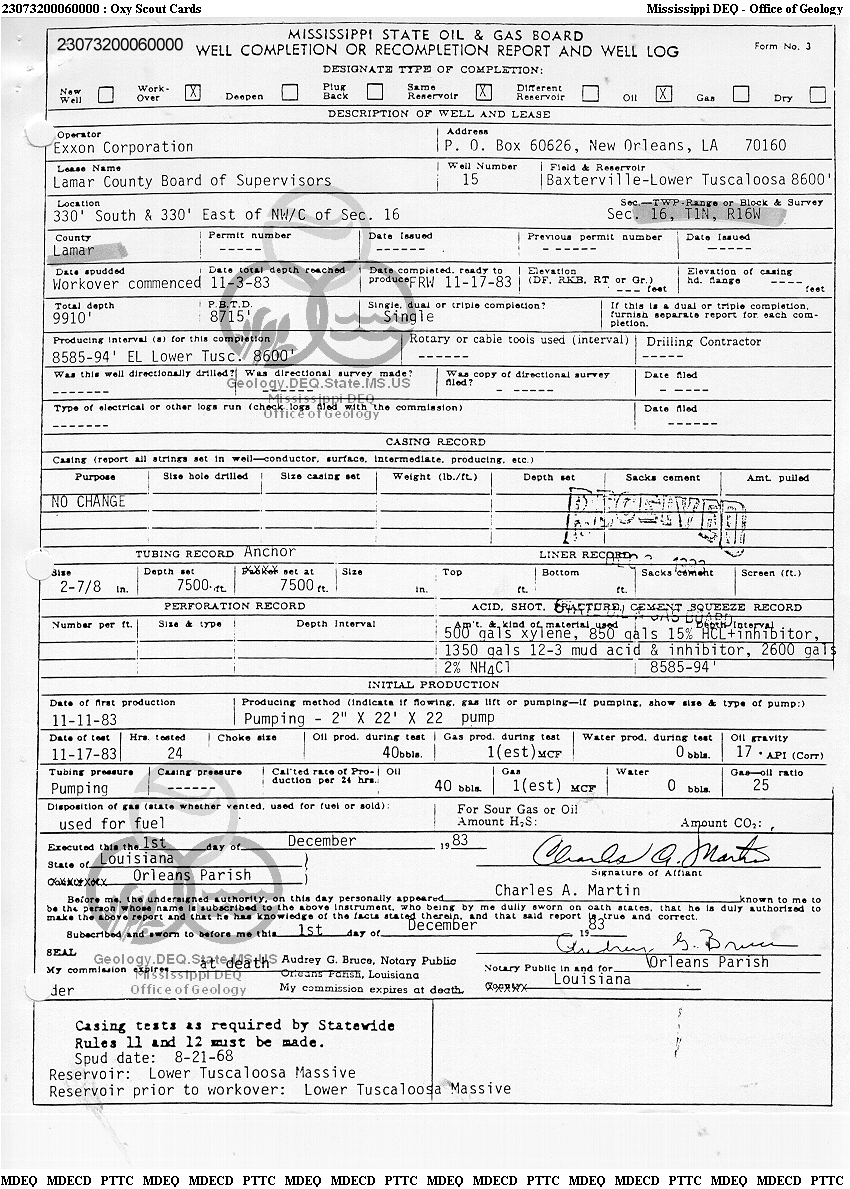 23073200060000 : Oxy Scout Cards Mississippi DEQ - Office of Geology
MISSISSIPPI STATE OIL & GAS BOARD
23073200060000 WELL COMPLETION OR RECOMPLETION REPORT AND WELL LOG Form No. 3
DESIGNATE TYPE OF COMPLETION:
New Well Work-Over X Deepen Plug Back Same Reservoir X Different Reservoir Oil X Gas Dry
DESCRIPTION OF WELL AND LEASE
Operator Address
Exxon Corporation P. O. Box 60626, New Orleans, LA 70160
Lease Name Well Number Field & Reservoir
Lamar County Board of Supervisors 15 Baxterville-Lower Tuscaloosa 8600'
Location Sec.—TWP-Range or Block & Survey
330' South & 330' East of NW/C of Sec. 16 Sec. 16, T1N, R16W
County Permit number Date Issued Previous permit number Date Issued
Lamar ----- ----- ------ ------
Date spudded Date total depth reached Date completed, ready to Elevation Elevation of casing
Workover commenced 11-3-83 produce FRW 11-17-83 (DF, RKB, RT or Gr.) --- feet hd. flange ---- feet
Total depth P.B.T.D. Single, dual or triple completion? If this is a dual or triple completion,
9910' 8715' Single furnish separate report for each com-
pletion.
Producing interval (s) for this completion Rotary or cable tools used (interval) Drilling Contractor
8585-94' EL Lower Tusc. 8600' ------ -----
Was this well directionally drilled? Was directional survey made? Was copy of directional survey Date filed
filed?
------- ------ - ----- - -----
Geology.DEQ.State.MS.US
Mississippi DEQ
Office of Geology
Type of electrical or other logs run (check logs filed with the commission) Date filed
------- ------
CASING RECORD
Casing (report all strings set in well—conductor, surface, intermediate, producing, etc.)
Purpose Size hole drilled Size casing set Weight (lb./ft.) Depth set Sacks cement Amt. pulled
NO CHANGE
RECEIVED
TUBING RECORD Anchor LINER RECORD
Size Depth set Packer set at Size Top Bottom Sacks cement Screen (ft.)
2-7/8 in. 7500 ft. 7500 ft. in. ft. ft.
PERFORATION RECORD ACID, SHOT, FRACTURE, CEMENT SQUEEZE RECORD
Number per ft. Size & type Depth Interval Am't. & kind of material used Depth Interval
500 gals xylene, 850 gals 15% HCL+inhibitor,
1350 gals 12-3 mud acid & inhibitor, 2600 gals
2% NH4Cl 8585-94'
INITIAL PRODUCTION
Date of first production Producing method (indicate if flowing, gas lift or pumping—if pumping, show size & type of pump:)
11-11-83 Pumping - 2" X 22' X 22 pump
Date of test Hrs. tested Choke size Oil prod. during test Gas prod. during test Water prod. during test Oil gravity
11-17-83 24 40 bbls. 1(est) MCF 0 bbls. 17 ° API (Corr)
Tubing pressure Casing pressure Cal'ted rate of Pro- Oil Gas Water Gas—oil ratio
duction per 24 hrs.
Pumping ------ 40 bbls. 1(est) MCF 0 bbls. 25
Disposition of gas (state whether vented, used for fuel or sold): For Sour Gas or Oil
used for fuel Amount H2S: Amount CO2:
Executed this the 1st day of December 19 83 Charles A. Martin
State of Louisiana ) Signature of Affiant
Orleans Parish )
Charles A. Martin
Before me, the undersigned authority, on this day personally appeared known to me to
be the person whose name is subscribed to the above instrument, who being by me dully sworn on oath states, that he is duly authorized to
make the above report and that he has knowledge of the facts stated therein, and that said report is true and correct.
Subscribed and sworn to before me this 1st day of December 19 83
Audrey G. Bruce
SEAL
Geology.DEQ.State.MS.US
Mississippi DEQ
Office of Geology
My commission expires at death Audrey G. Bruce, Notary Public Notary Public in and for Orleans Parish
Orleans Parish, Louisiana Louisiana
der My commission expires at death. County
Casing tests as required by Statewide
Rules 11 and 12 must be made.
Spud date: 8-21-68
Reservoir: Lower Tuscaloosa Massive
Reservoir prior to workover: Lower Tuscaloosa Massive
MDEQ MDECD PTTC MDEQ MDECD PTTC MDEQ MDECD PTTC MDEQ MDECD PTTC MDEQ MDECD PTTC MDEQ MDECD PTTC